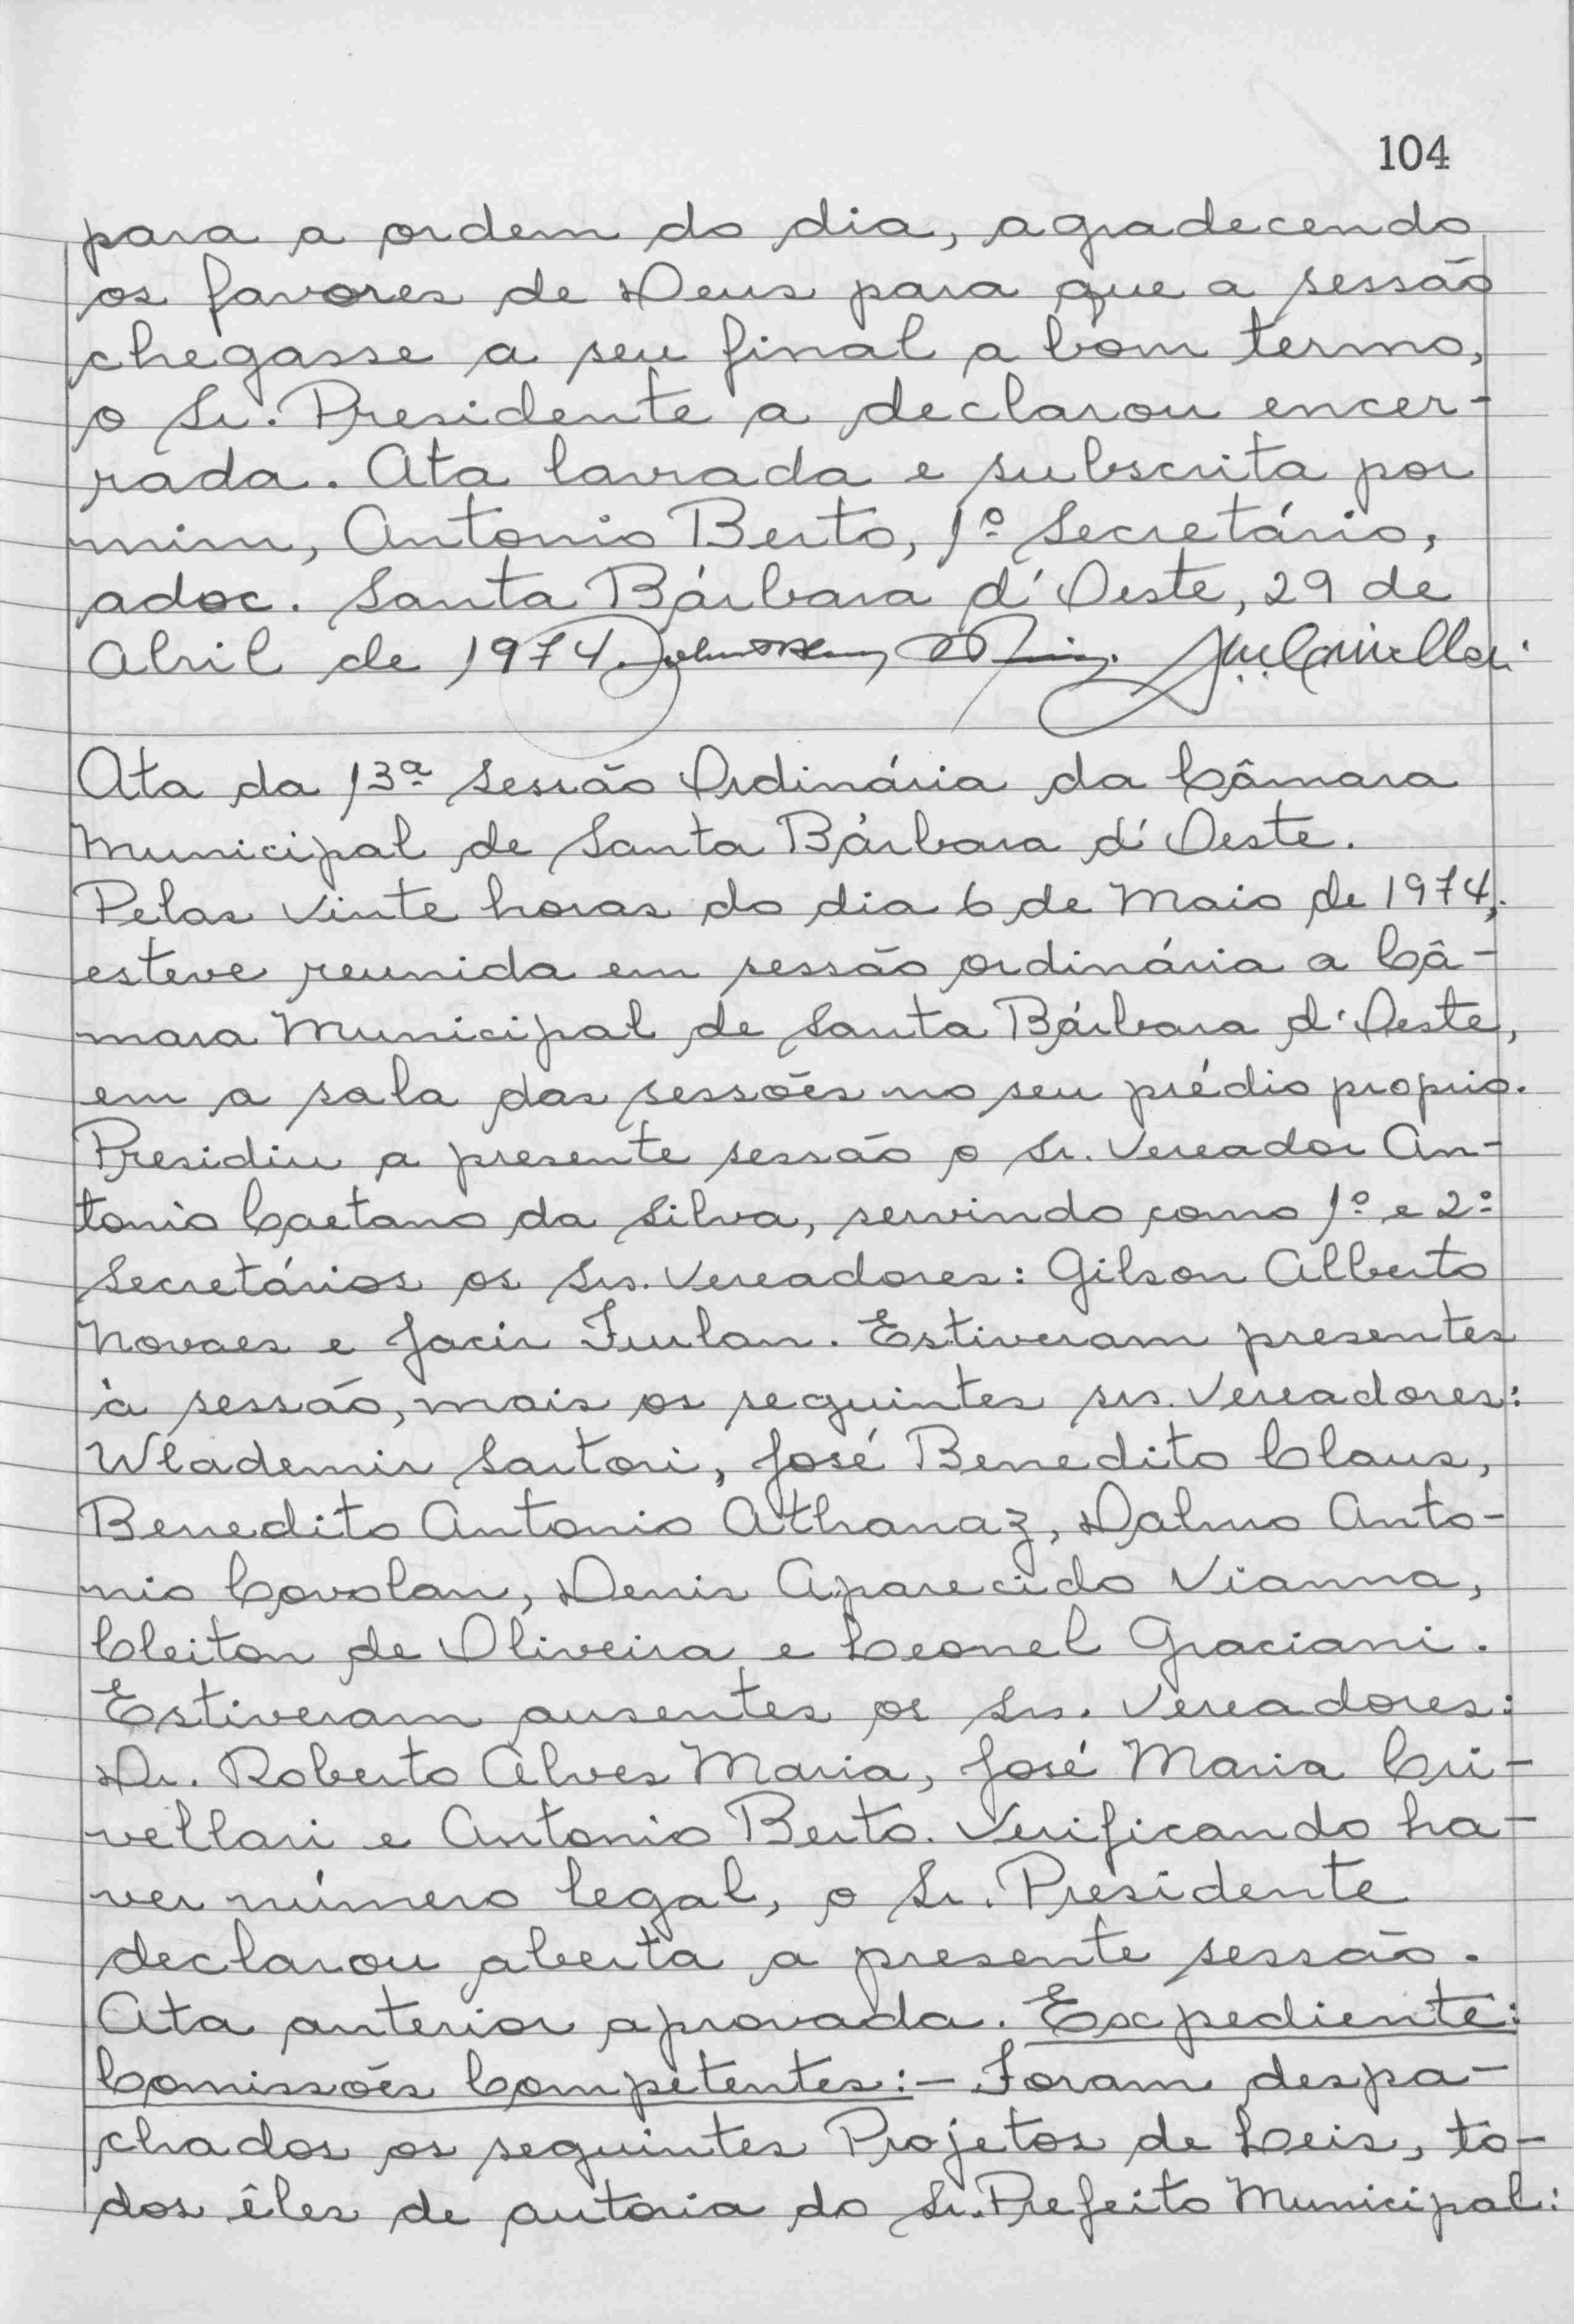 104
para a ordem do dia, agradecendo
os favores de Deus para que a sessão
chegasse a seu final a bom termo,
o Sr. Presidente a declarou encer-
rada. Ata lavrada e subscrita por
mim, Antonio Berto, 1º Secretário,
adoc. Santa Bárbara d'Oeste, 29 de
Abril de 1974.
Ata da 13ª Sessão Ordinária da Câmara
Municipal de Santa Bárbara d'Oeste.
Pelas vinte horas do dia 6 de Maio de 1974,
esteve reunida em sessão ordinária a Câ-
mara Municipal de Santa Bárbara d'Oeste,
em a sala das sessões no seu prédio proprio.
Presidiu a presente sessão o Sr. Vereador An-
tonio Caetano da Silva, servindo como 1º e 2º
Secretários os Srs. Vereadores: Gilson Alberto
Novaes e Jacir Furlan. Estiveram presentes
à sessão, mais os seguintes srs. Vereadores:
Wlademir Sartori, José Benedito Claus,
Benedito Antonio Athanaz, Dalmo Anto-
nio Covolan, Denis Aparecido Vianna,
Cleiton de Oliveira e Leonel Graciani.
Estiveram ausentes os Srs. Vereadores:
Dr. Roberto Alves Maria, José Maria Cri-
vellari e Antonio Berto. Verificando ha-
ver número legal, o Sr. Presidente
declarou aberta a presente sessão.
Ata anterior aprovada. Expediente:
Comissões Competentes:- Foram despa-
chados os seguintes Projetos de Leis, to-
dos êles de autoria do Sr. Prefeito Municipal: